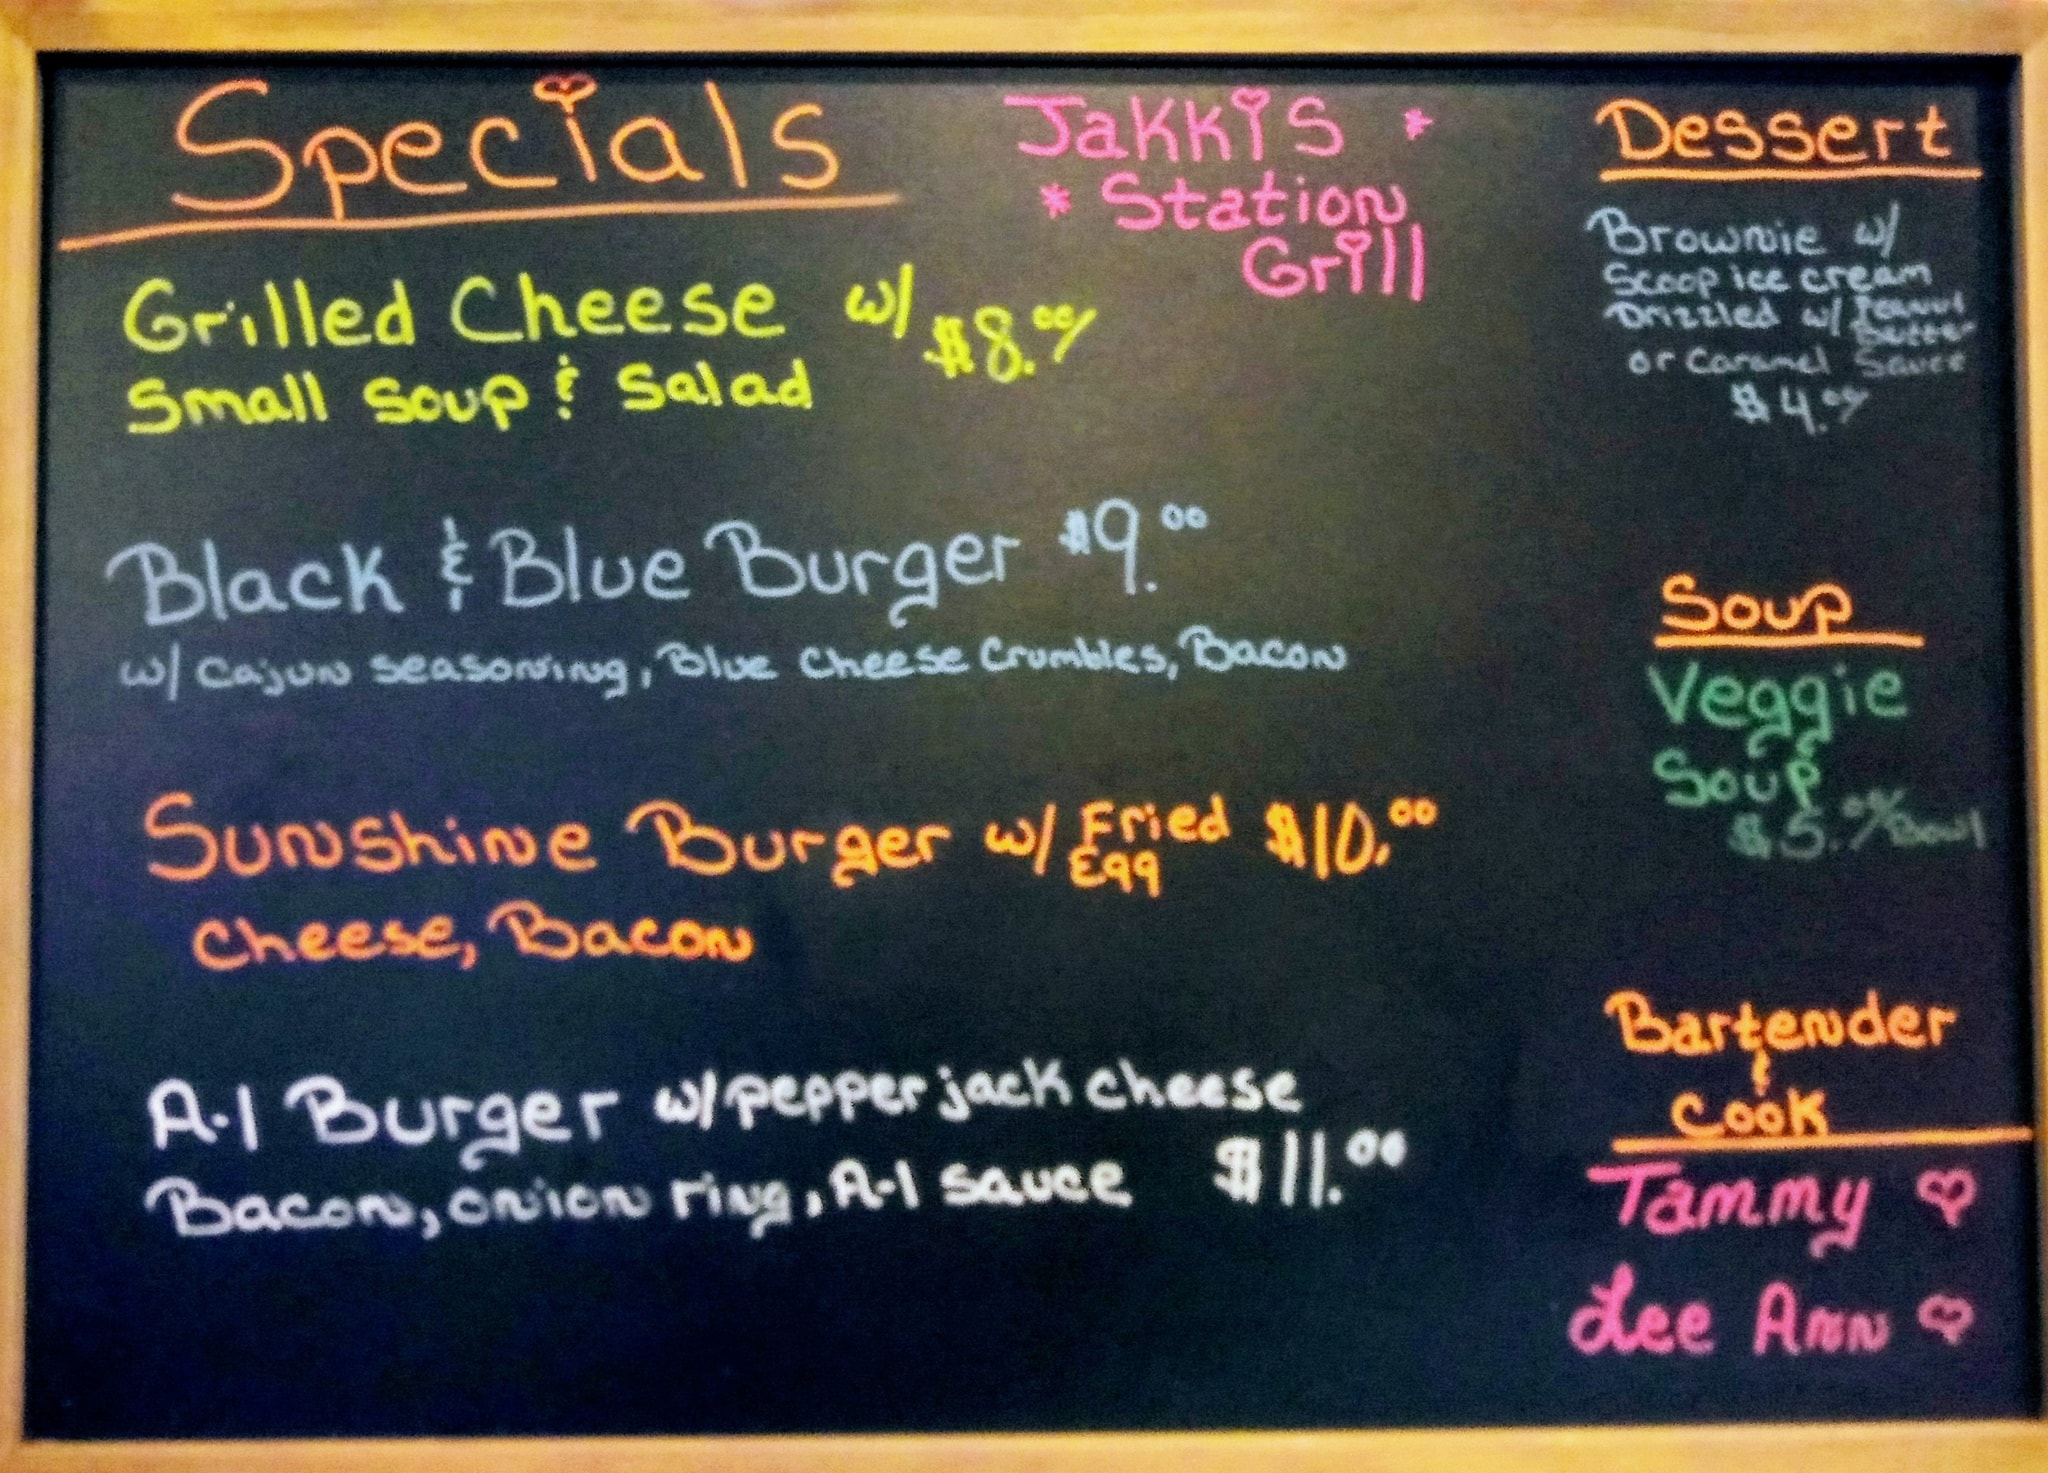 Specials
Jakkis *
* Station
Grill
Grilled Cheese w/
Small soup & Salad
$8.00/
Black & Blue Burger $9.00
w/ Cajun seasoning, Blue Cheese Crumbles, Bacon
Sunshine Burger w/ Fried Egg $10.00
Cheese, Bacon
A-1 Burger w/ pepper jack cheese
Bacon, onion ring, A-1 sauce $11.00
Dessert
Brownie w/
Scoop ice cream
Drizzled w/ Peanut
Butter
or Caramel Sauce
$4.00/
Soup
Veggie
Soup
$5.00/Bowl
Bartender
&
Cook
Tammy
Lee Ann